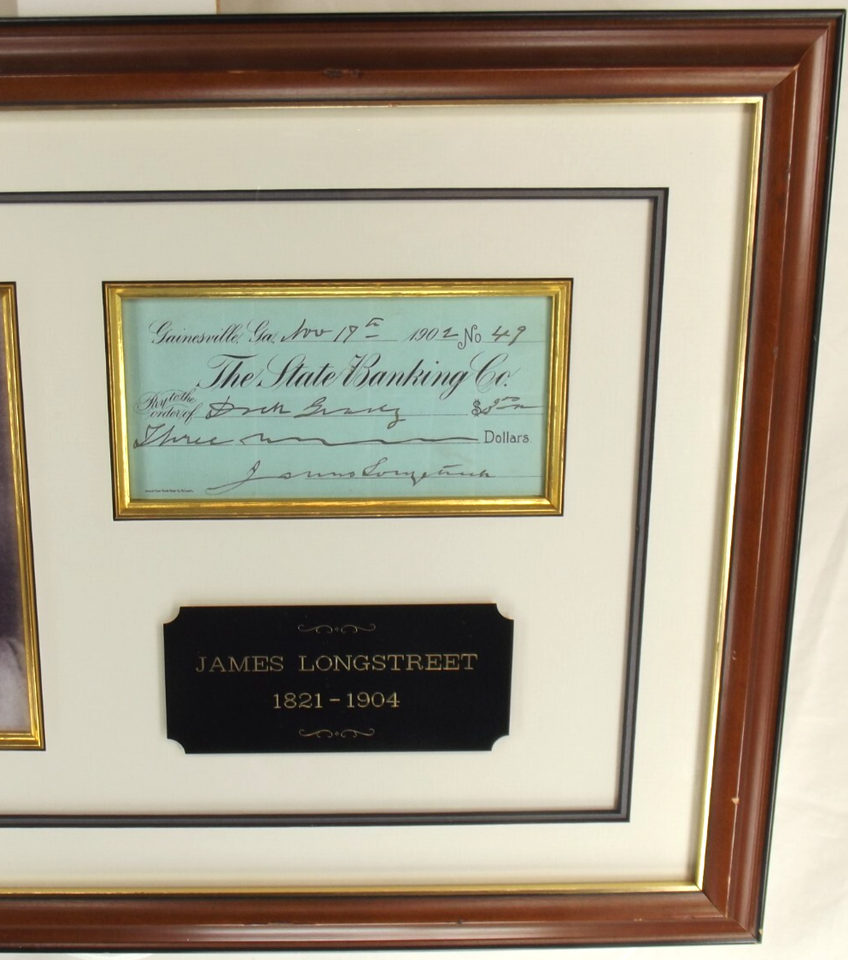 Gainesville, Ga. Nov 19th 1902 No. 49
The State Banking Co.
Pay to the order of $3.00
Three Dollars
James Longstreet
JAMES LONGSTREET
1821-1904